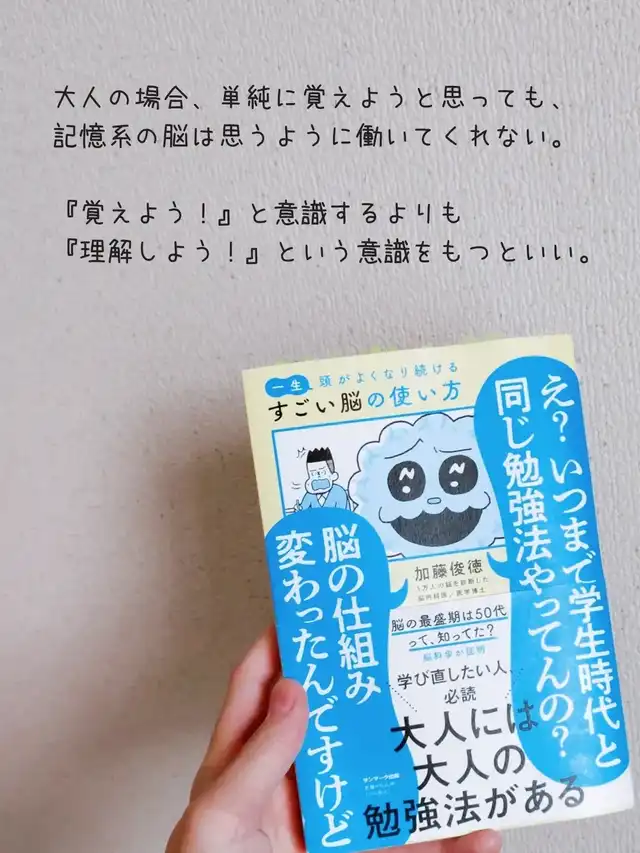 大人の場合、単純に覚えようと思っても、
記憶系の脳は思うように働いてくれない。
『覚えよう!』と意識するよりも
『理解しよう!』という意識をもつといい。
一生、頭がよくなり続ける
すごい脳の使い方
え? いつまで学生時代と
同じ勉強法やってんの?
脳の仕組み
変わったんですけど
加藤俊徳
1万人の脳を診断した
脳内科医/医学博士
脳の最盛期は50代
って、知ってた?
脳科学が証明
学び直したい人、
必読
大人には
大人の
勉強法がある
サンマーク出版